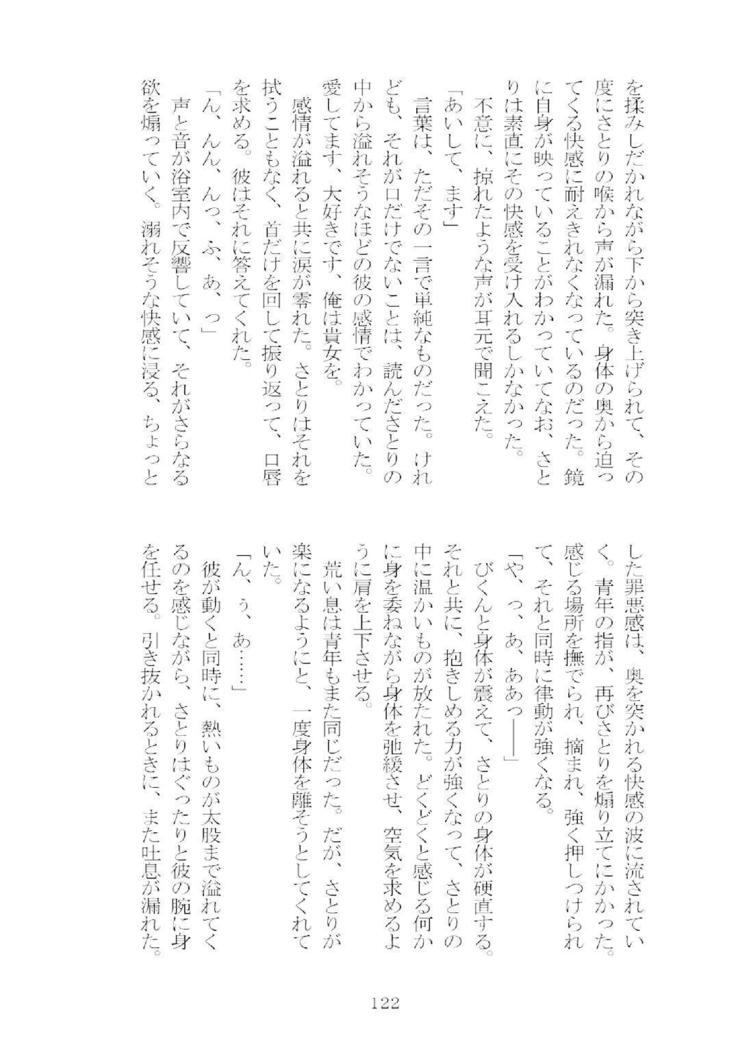 を揉みしだかれながら下から突き上げられて、その
度にさとりの喉から声が漏れた。身体の奥から迫っ
てくる快感に耐えきれなくなっているのだった。鏡
に自身が映っていることがわかっていてなお、さと
りは素直にその快感を受け入れるしかなかった。
不意に、掠れたような声が耳元で聞こえた。
「あいして、ます」
言葉は、ただその一言で単純なものだった。けれ
ども、それが口だけでないことは、読んださとりの
中から溢れそうなほどの彼の感情でわかっていた。
愛してます、大好きです、俺は貴女を。
感情が溢れると共に涙が零れた。さとりはそれを
拭うこともなく、首だけを回して振り返って、口唇
を求める。彼はそれに答えてくれた。
「ん、んん、んっ、ふ、あ、っ」
声と音が浴室内で反響していて、それがさらなる
欲を煽っていく。溺れそうな快感に浸る、ちょっと
した罪悪感は、奥を突かれる快感の波に流されてい
く。青年の指が、再びさとりを煽り立てにかかった。
感じる場所を撫でられ、摘まれ、強く押しつけられ
て、それと同時に律動が強くなる。
「や、っ、あ、ああっ――」
びくんと身体が震えて、さとりの身体が硬直する。
それと共に、抱きしめる力が強くなって、さとりの
中に温かいものが放たれた。どくどくと感じる何か
に身を委ねながら身体を弛緩させ、空気を求めるよ
うに肩を上下させる。
荒い息は青年もまた同じだった。だが、さとりが
楽になるようにと、一度身体を離そうとしてくれて
いた。
「ん、ぅ、あ……」
彼が動くと同時に、熱いものが太股まで溢れてく
るのを感じながら、さとりはぐったりと彼の腕に身
を任せる。引き抜かれるときに、また吐息が漏れた。
122